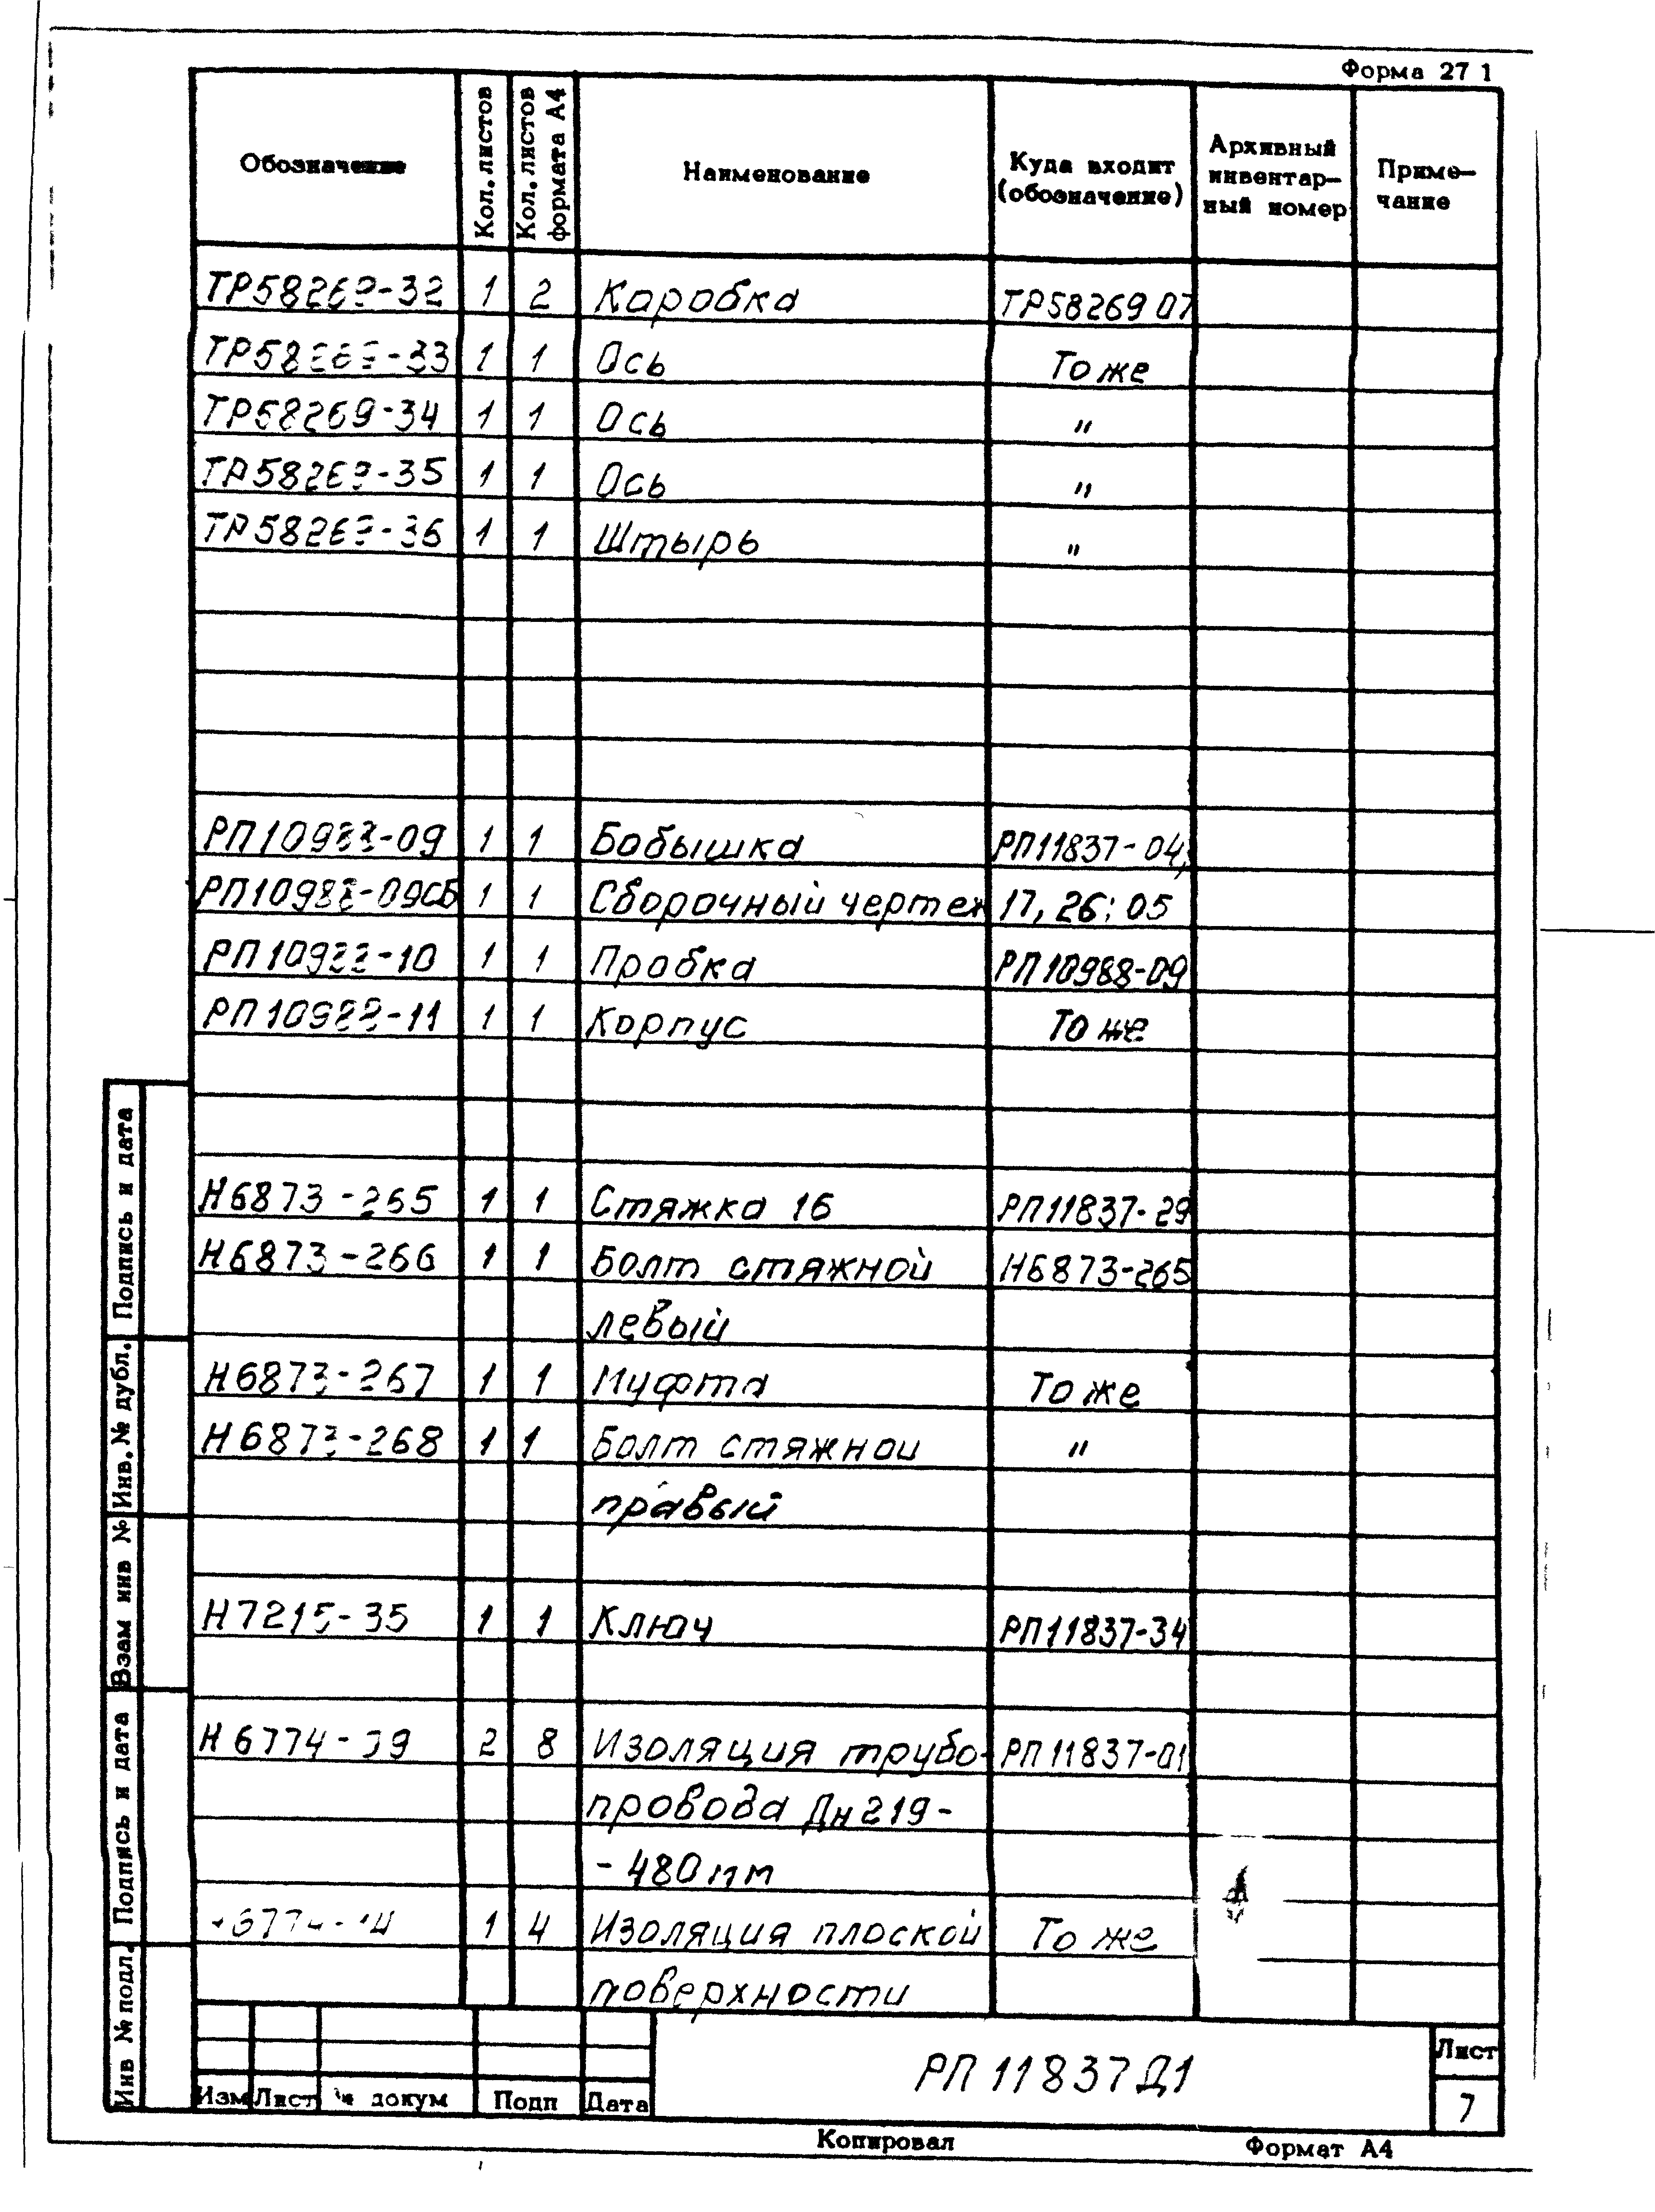 Форма 27 1
Обозначение Кол. листов Кол. листов формата А4 Наименование Куда входит (обозначение) Архивный инвентарный номер Приме-чание
ТР58269-32 1 2 Коробка ТР58269 07
ТР58269-33 1 1 Ось То же
ТР58269-34 1 1 Ось "
ТР58269-35 1 1 Ось "
ТР58269-36 1 1 Штырь "
РП10988-09 1 1 Бобышка РП11837-04,
РП10988-09СБ 1 1 Сборочный чертеж 17, 26; 05
РП10988-10 1 1 Пробка РП10988-09
РП10988-11 1 1 Корпус То же
Н6873-265 1 1 Стяжка 16 РП11837-29
Н6873-266 1 1 Болт стяжной Н6873-265
левый
Н6873-267 1 1 Муфта То же
Н6873-268 1 1 Болт стяжной "
правый
Н7215-35 1 1 Ключ РП11837-34
Н6774-39 2 8 Изоляция трубо- РП11837-01
провода Дн219-
-480мм
1 4 Изоляция плоской То же
поверхности
Подпись и дата
Инв. № дубл.
Взам инв №
Подпись и дата
Инв № подл.
Изм Лист № докум Подп Дата
РП11837Д1
Лист
7
Копировал Формат А4